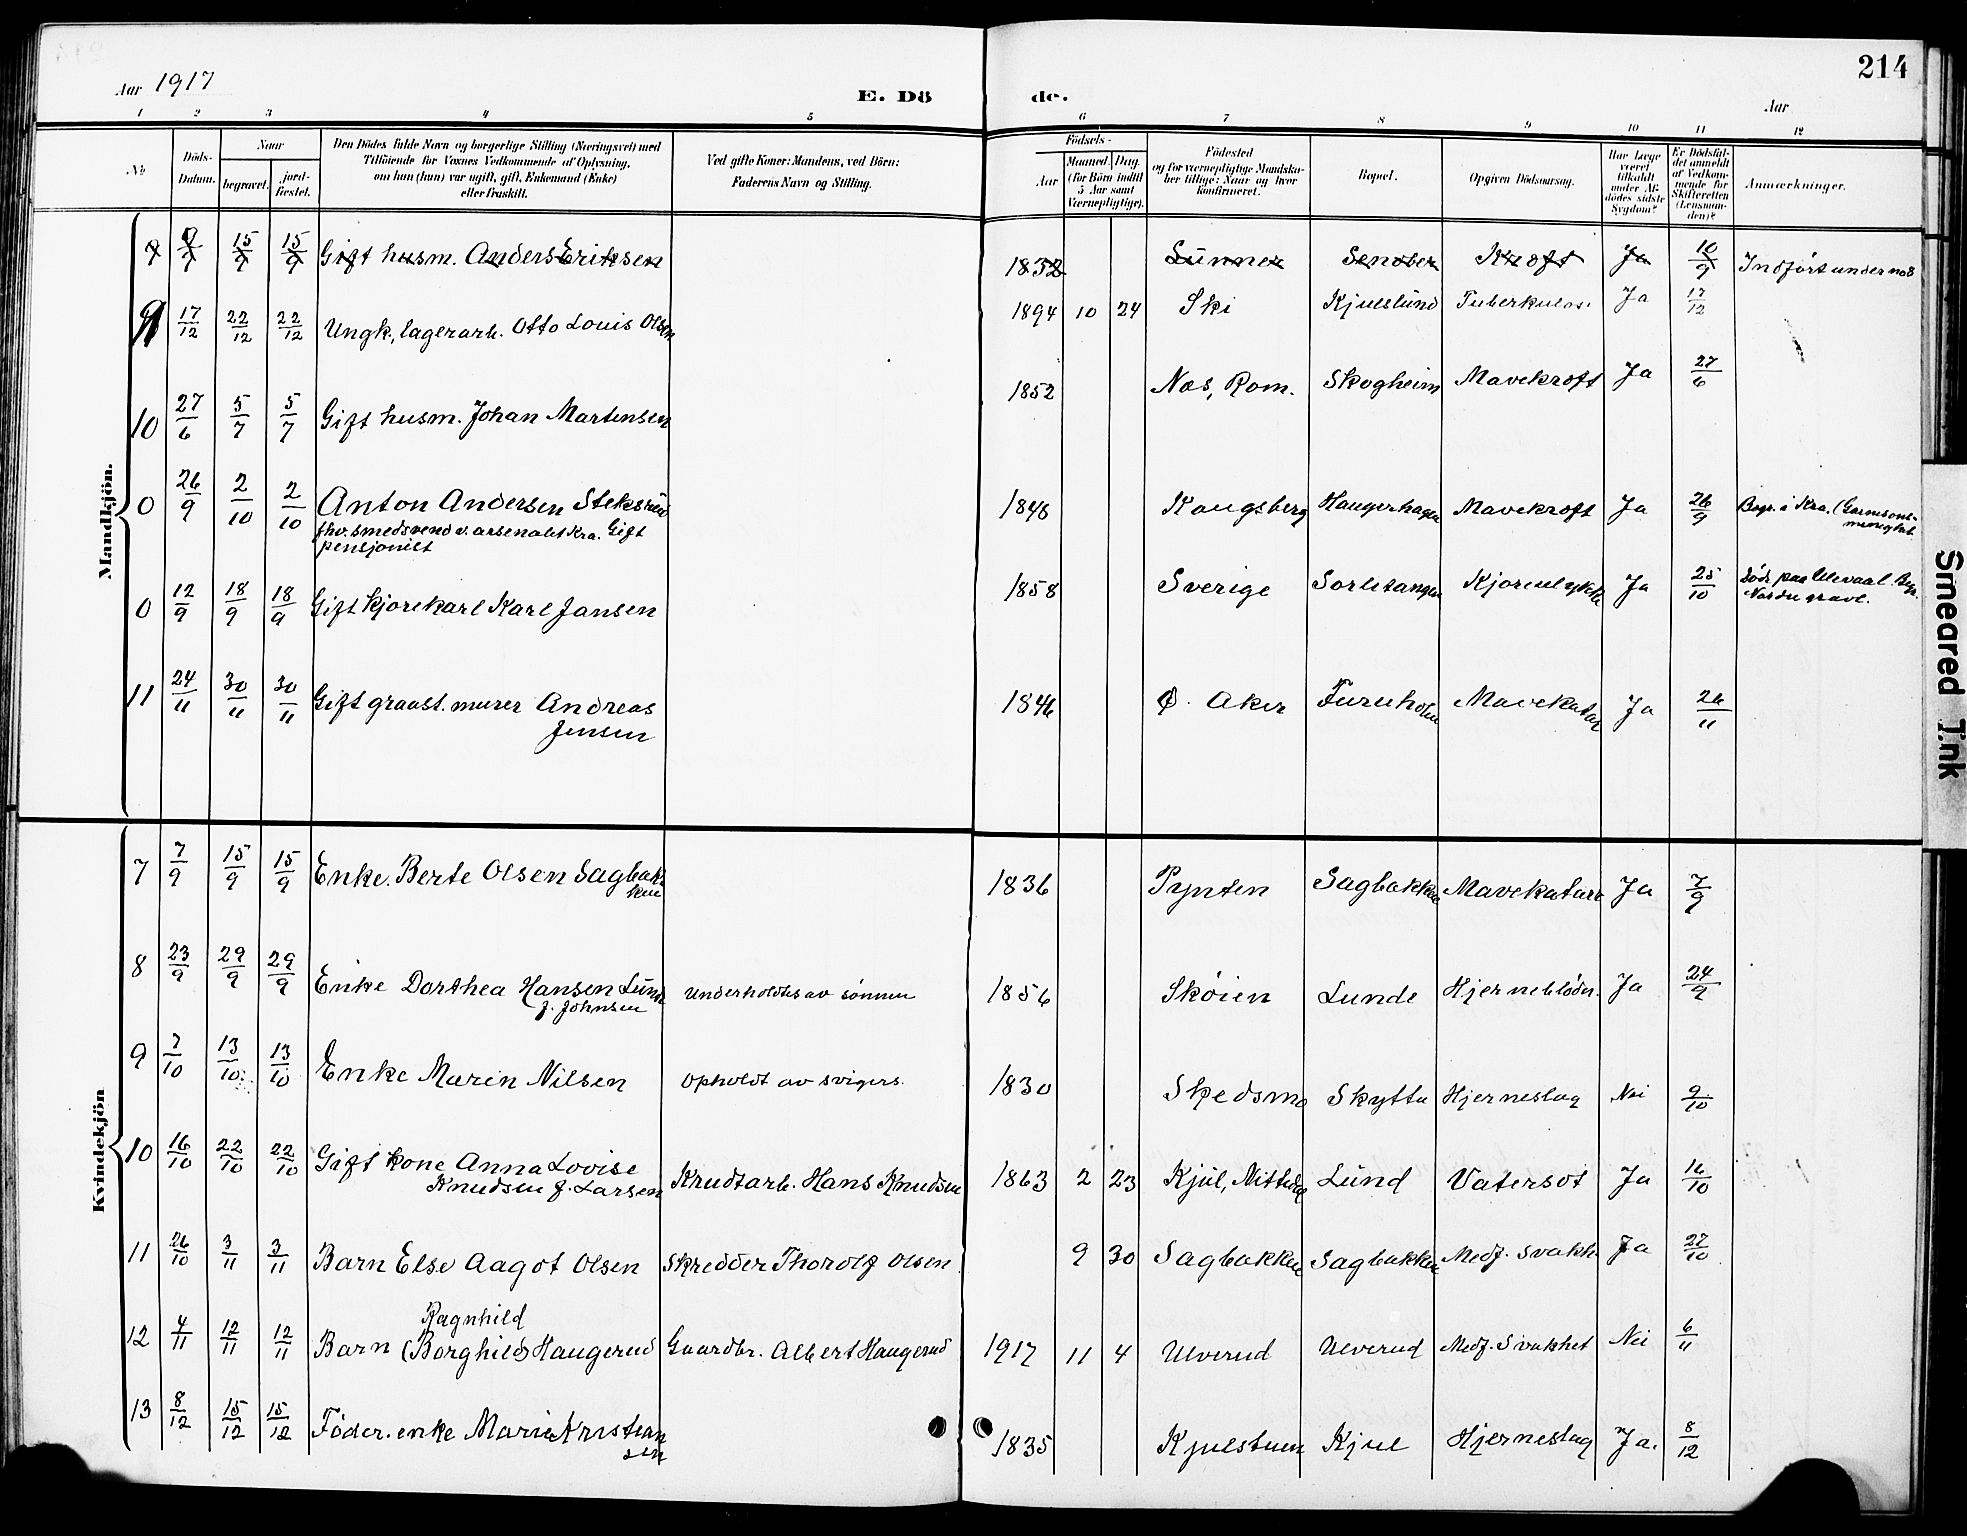 214
Aar 1917
E. Dö de.
Aar
1 2 3 4 5 6 7 8 9 10 11 12
No
Döds-Datum.
Naar
begravet.
jord-fæstet.
Den Dödes fulde Navn og borgerlige Stilling (Næringsvei) med
Tilföiende for Voxnes Vedkommende af Oplysning,
om han (hun) var ugift, gift, Enkemand (Enke)
eller fraskilt.
Ved gifte Koner: Mandens, ved Börn:
Faderens Navn og Stilling.
Födsels-
Aar
Maaned. Dag.
(for Börn indtil
5 Aar samt
Værnepligtige).
Födested
og for værnepligtige Mandska-
ber tillige: Naar og hvor
konfirmeret.
Bopæl.
Opgiven Dödsaarsag.
Har Læge
været
tilkaldt
under Af-
dödes sidste
Sygdom?
Er Dödsfal-
det anmeldt
af Vedkom-
mende for
Skifteretten
(Lensman-
den)?
Anmærkninger.
Mandkjön.
9 9/9 15/9 15/9 Gift husm. Anders Eriksen 1832 Lunner Senober Kræft Ja 10/9 Indført under no 8
9 17/12 22/12 22/12 Ungk., lagerarb. Otto Louis Olsen 1894 10 24 Ski Kjulslund Tuberkulos. Ja 17/12
10 27/6 5/7 5/7 Gift husm. Johan Martensen 1852 Nes, Rom. Skogheim Mavekræft Ja 27/6
0 26/9 2/10 2/10 Anton Andersen Steksrud 1848 Kongsberg Haugerhagen Mavekræft Ja 26/9 Begr. i Kra. (Garnisons-
fhv. smedsvend v. arsenalet Kra. Gift menighet.
pensjonist
0 12/9 18/9 18/9 Gift kjørekarl Karl Jansen 1858 Sverige Sorletangen Kjøreulykke Ja 25/10 Død paa Ulevaal. Begr.
Nordre gravl.
11 24/11 30/11 30/11 Gift graast. murer Andreas 1846 Ø. Aker Furuholm Mavekatar Ja 26/11
Jensen
Kvindekjön
7 7/9 15/9 15/9 Enke. Berte Olsen Sagbak- 1836 Pynten Sagbakken Mavekatarr Ja 7/9
ken
8 23/9 29/9 29/9 Enke Dorthea Hansen Lund Underholdtes av sønnen 1856 Skøien Lunde Hjerneblødn. Ja 24/9
f. Johnsen
9 7/10 13/10 13/10 Enke Maren Nilsen Opholdt av svigers. 1830 Skedsmo Skytta Hjerneslag Nei 9/10
10 16/10 22/10 22/10 Gift kone Anna Lovise
Knudsen f. Larsen Krudtarb. Hans Knudsen 1863 2 23 Kjul, Nittedal Lund Vatersot Ja 16/10
11 26/10 3/11 3/11 Barn Else Aagot Olsen Skredder Thorolf Olsen 9 30 Sagbakken Sagbakken Medf. svakh. Ja 27/10
Ragnhild
12 4/11 12/11 12/11 Barn (Borghild) Haugerud Gaardbr. Albert Haugerud 1917 11 4 Ulverud Ulverud Medf. Svakhet Nei 6/11
13 8/12 15/12 15/12 Føder. enke Marie Kristian 1835 Kjulstuen Kjul Hjerneslag Ja. 8/12
sen
Smeared Ink